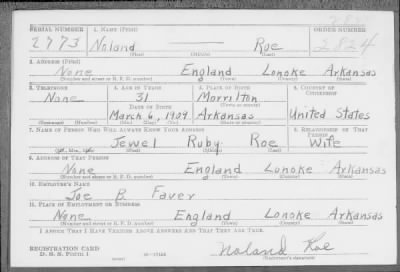 SERIAL NUMBER 1. NAME (Print) ORDER NUMBER
2773 Noland ——— Roe 2824
(First) (Middle) (Last)
2. ADDRESS (Print)
None England Lonoke Arkansas
(Number and street or R. F. D. number) (Town) (County) (State)
3. TELEPHONE 4. AGE IN YEARS 5. PLACE OF BIRTH 6. COUNTRY OF CITIZENSHIP
None 31 Morrilton
DATE OF BIRTH (Town or county)
March 6, 1909 Arkansas United States
(Exchange) (Number) (Mo.) (Day) (Yr.) (State or country)
7. NAME OF PERSON WHO WILL ALWAYS KNOW YOUR ADDRESS 8. RELATIONSHIP OF THAT PERSON
Jewel Ruby Roe Wife
(Mr., Mrs., Miss) (First) (Middle) (Last)
9. ADDRESS OF THAT PERSON
None England Lonoke Arkansas
(Number and street or R. F. D. number) (Town) (County) (State)
10. EMPLOYER'S NAME
Joe B. Faver
11. PLACE OF EMPLOYMENT OR BUSINESS
None England Lonoke Arkansas
(Number and street or R. F. D. number) (Town) (County) (State)
I AFFIRM THAT I HAVE VERIFIED ABOVE ANSWERS AND THAT THEY ARE TRUE.
REGISTRATION CARD
D. S. S. Form 1 (over) Noland Roe
(Registrant's signature)